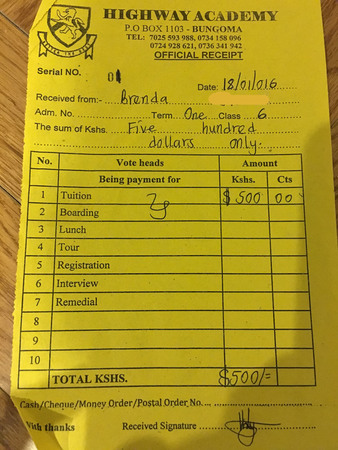 HIGHWAY ACADEMY
P.O BOX 1103 - BUNGOMA
TEL: 7025 593 988, 0734 158 096
0724 928 621, 0736 341 942
OFFICIAL RECEIPT
Serial NO. 01
Date: 18/01/016
Received from:- Brenda
Adm. No. Term One Class 6
The sum of Kshs. Five hundred
dollars only.
No. Vote heads Amount
Being payment for Kshs. Cts
1 Tuition $500 00
2 Boarding
3 Lunch
4 Tour
5 Registration
6 Interview
7 Remedial
8
9
10
TOTAL KSHS. $500/=
Cash/Cheque/Money Order/Postal Order No.
With thanks Received Signature